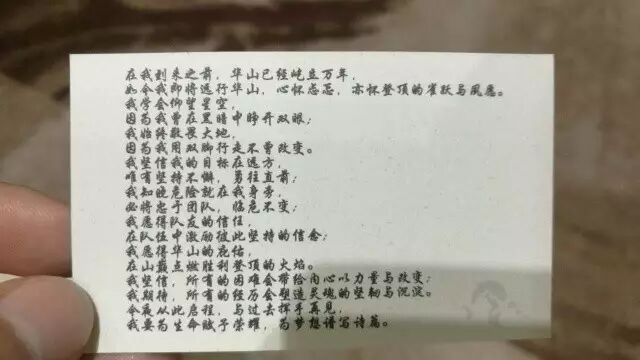 在我到来之前，华山已经屹立万年，
如今我即将远行华山，心怀忐忑，亦怀登顶的雀跃与夙愿。
我学会仰望星空，
因为我曾在黑暗中睁开双眼；
我始终敬畏大地，
因为我用双脚行走不曾改变。
我坚信我的目标在远方，
唯有坚持不懈，勇往直前；
我知晓危险就在我身旁，
必将忠于团队，临危不变；
我愿得队友的信任，
在队伍中激励彼此坚持的信念；
我愿得华山的庇佑，
在山巅点燃胜利登顶的火焰。
我坚信，所有的困难会带给内心以力量与改变；
我期待，所有的经历会塑造灵魂的坚韧与沉淀。
今夜从此启程，与过去挥手再见，
我要为生命赋予荣耀，为梦想谱写诗篇。